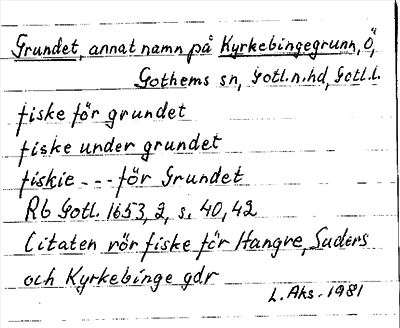 Grundet, annat namn på Kyrkebingegrunn, Ö,
Gothems sn, Gotl.n.hd, Gotl.l.
fiske för grundet
fiske under grundet
fiskie --- för Grundet
Rb Gotl. 1653, 2, s. 40, 42
Citaten rör fiske för Hangre, Suders
och Kyrkebinge gdr
L. Aks. 1981